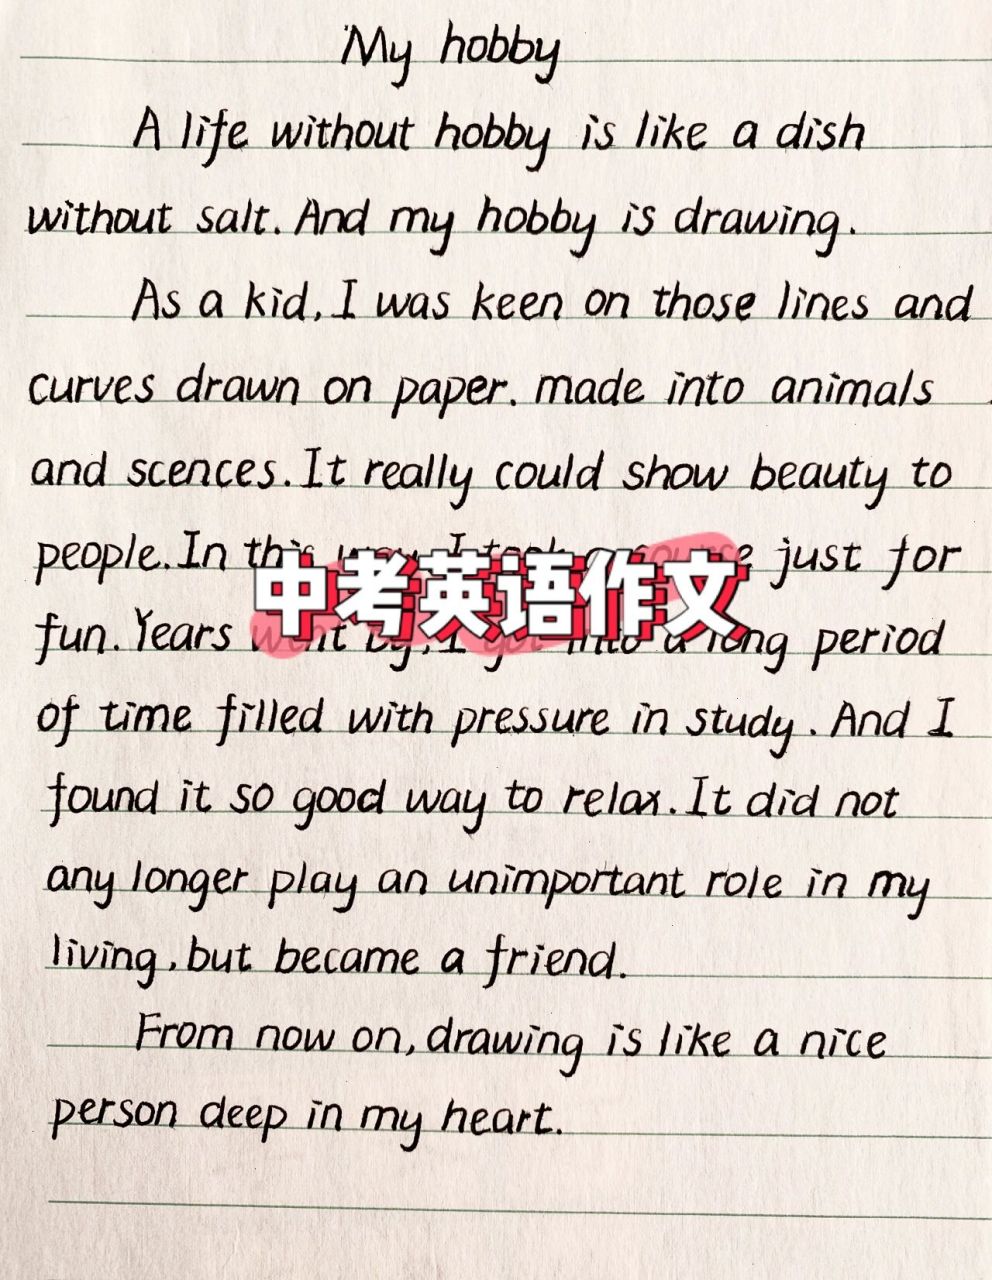 My hobby
A life without hobby is like a dish
without salt. And my hobby is drawing.
As a kid, I was keen on those lines and
curves drawn on paper. made into animals
and scences. It really could show beauty to
people. In this way, I took a course just for
中考英语作文
fun. Years went by, I got into a long period
of time filled with pressure in study. And I
found it so good way to relax. It did not
any longer play an unimportant role in my
living, but became a friend.
From now on, drawing is like a nice
person deep in my heart.